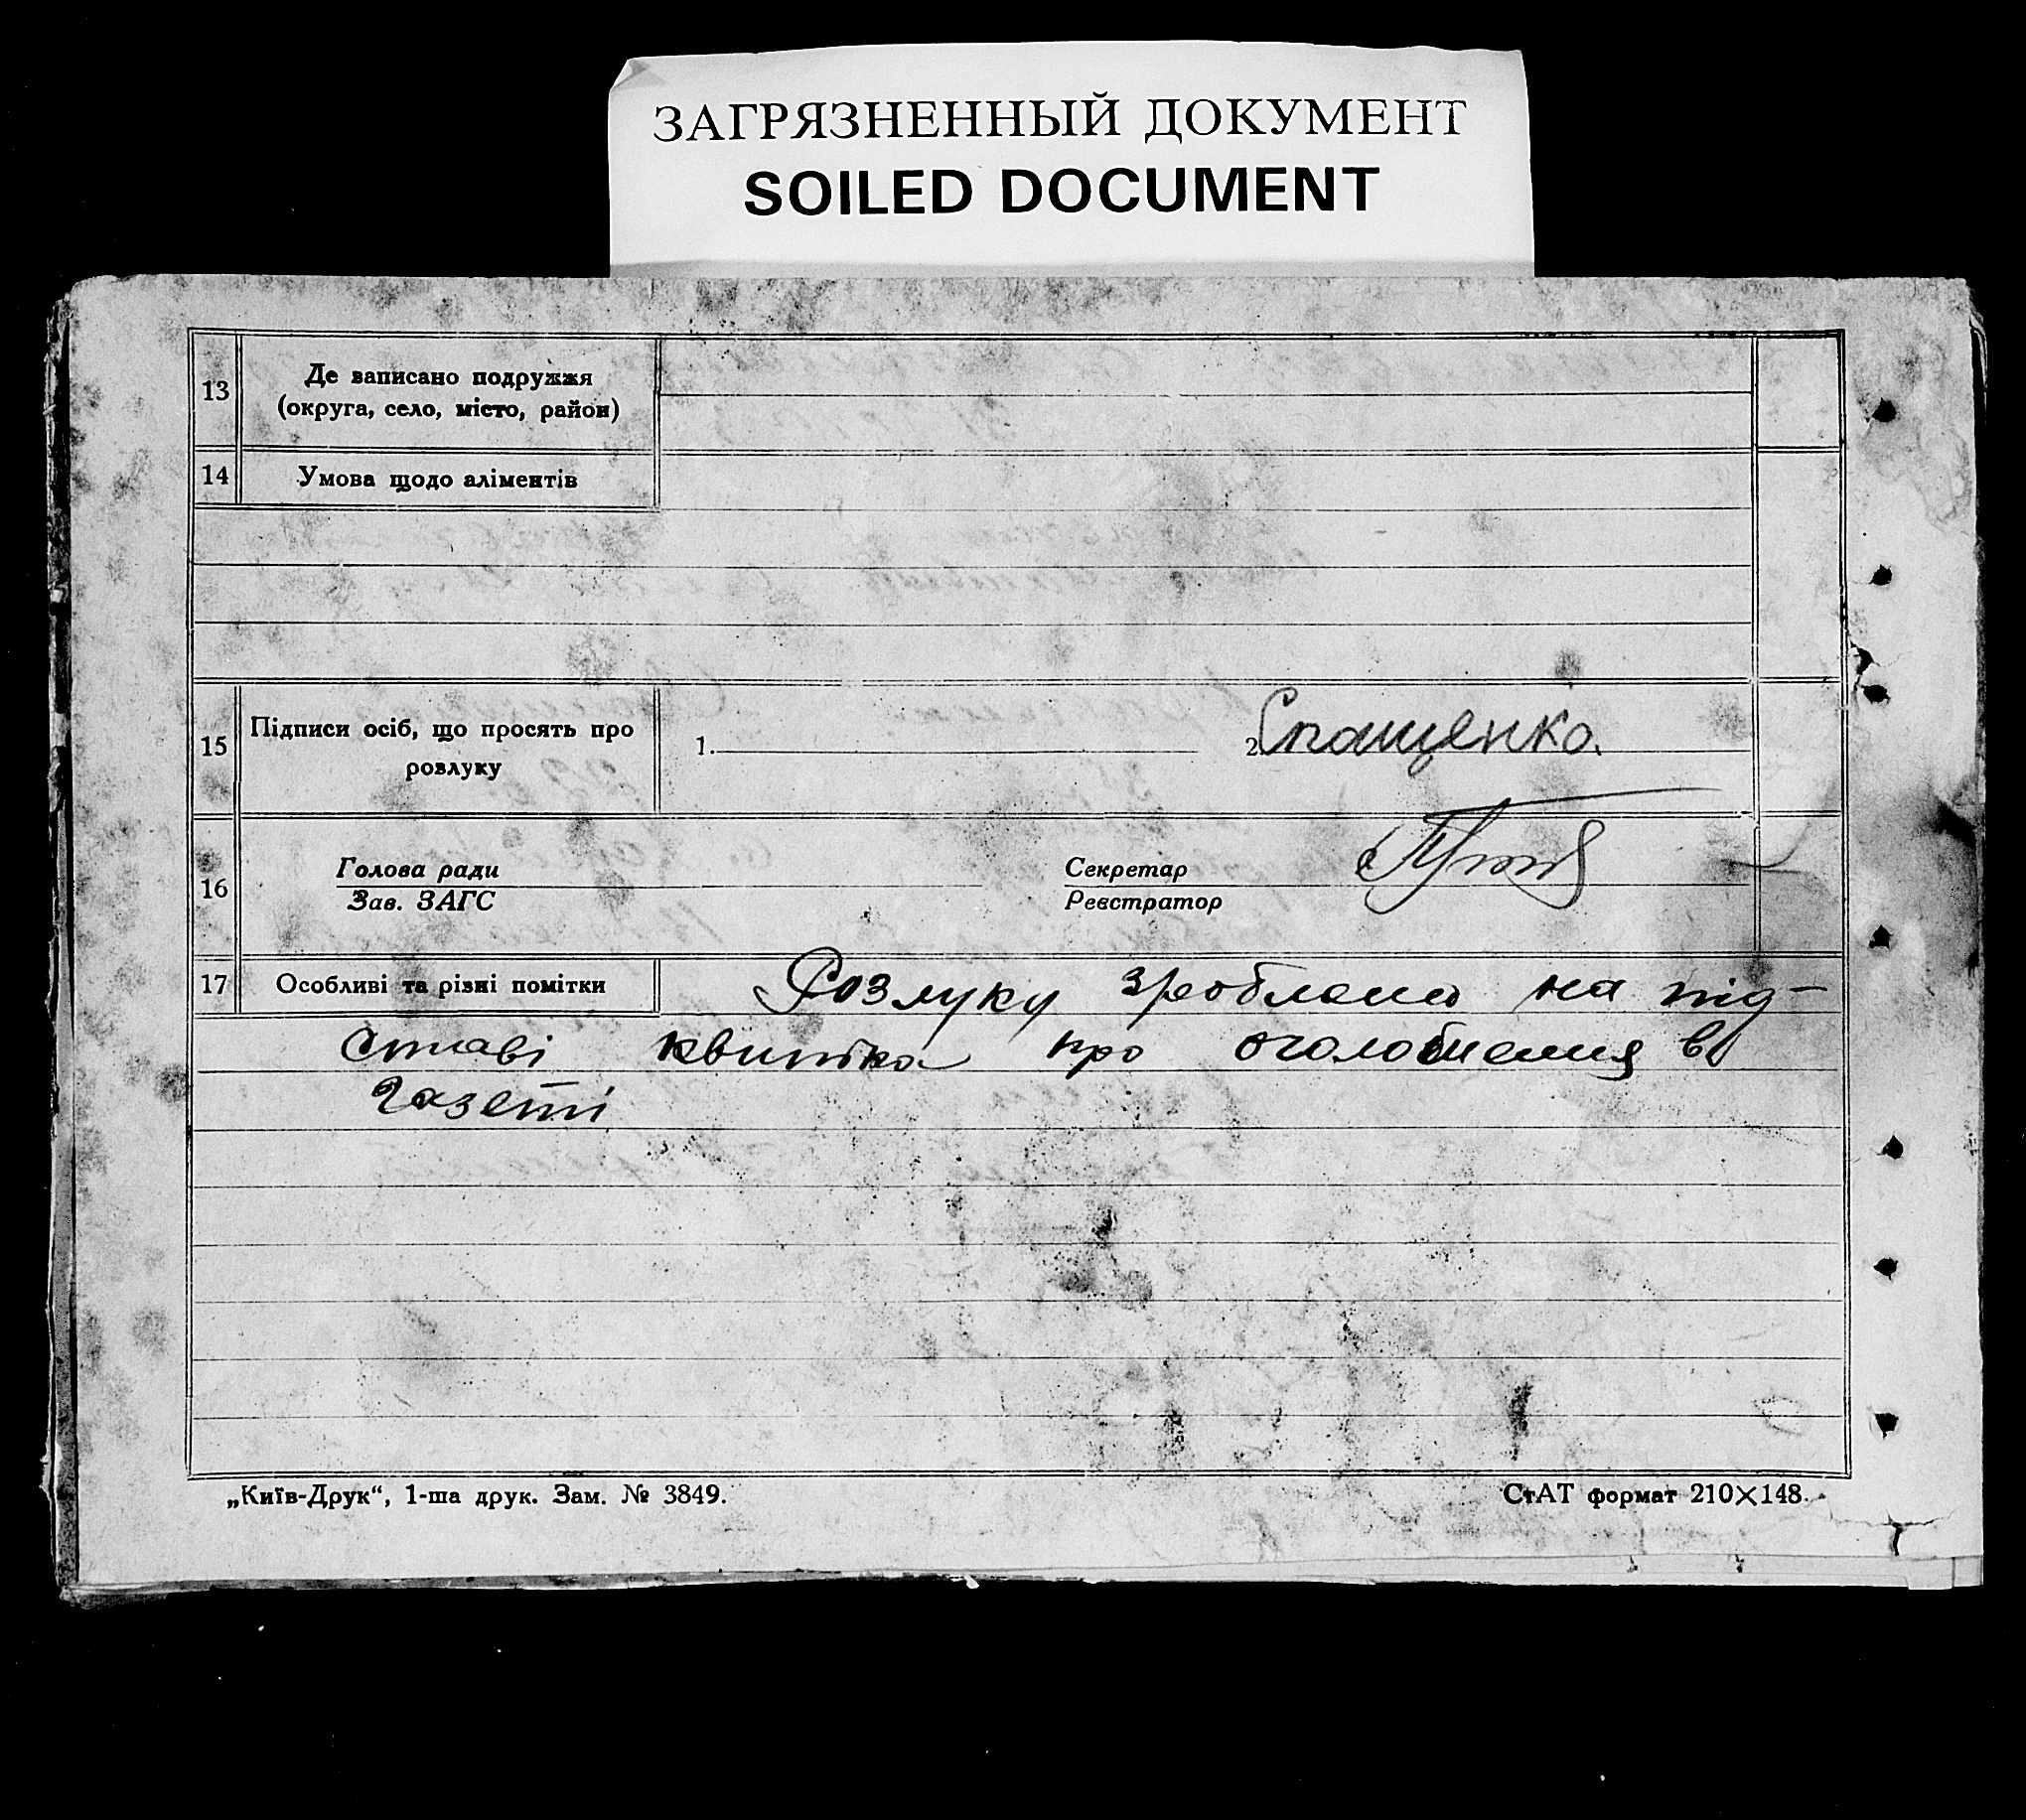 ЗАГРЯЗНЕННЫЙ ДОКУМЕНТ
SOILED DOCUMENT
13
Де записано подружжя
(округа, село, місто, район)
14
Умова щодо аліментів
15
Підписи осіб, що просять про
розлуку
1.
2. Спащенко.
16
Голова ради
Зав. ЗАГС
Секретар
Реєстратор
17
Особливі та різні помітки
Розлуку зроблено на під-
ставі квитка про оголошення в
газеті
„Київ-Друк“, 1-ша друк. Зам. № 3849.
СтАТ формат 210×148.